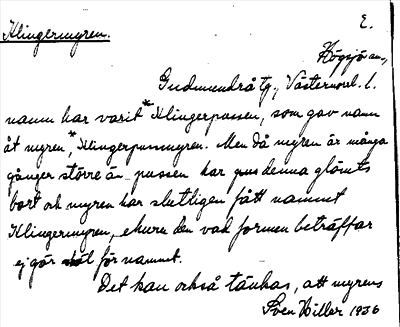 Klingermyren. E.
Högsjö sn,
Gudmundrå tg., Västernorrl. l.
namn har varit *Klingerpussen, som gav namn
åt myren, *Klingerpussmyren. Men då myren är många
gånger större än pussen har denna glömts
bort och myren har slutligen fått namnet
Klingermyren, ehuru den vad formen beträffar
ej gör skäl för namnet.
Det kan också tänkas, att myrens
Sven Hiller 1936